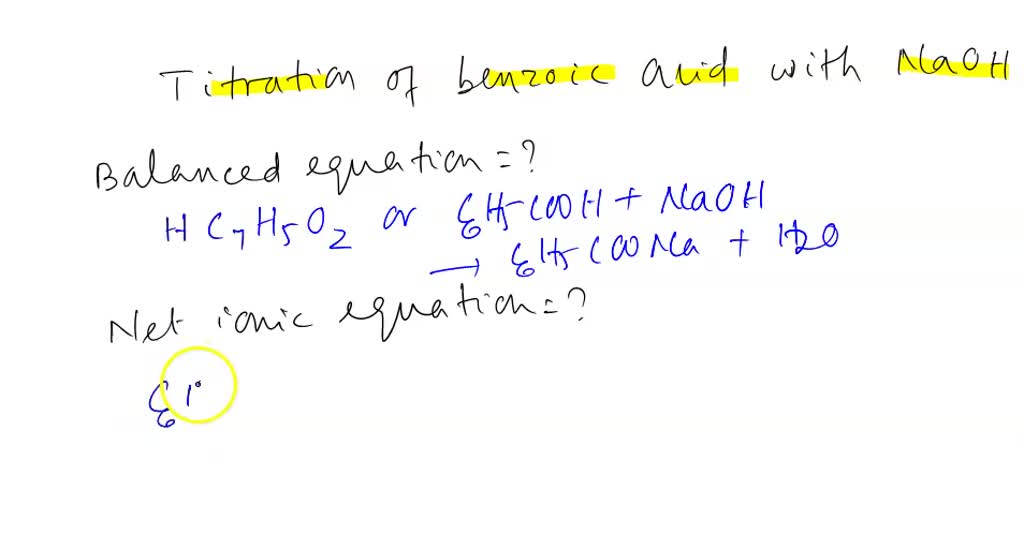 Titration of benzoic acid with NaOH
Balanced equation = ?
H C7H5O2 or C6H5-COOH + NaOH
→ C6H5COONa + H2O
Net ionic equation = ?
C6